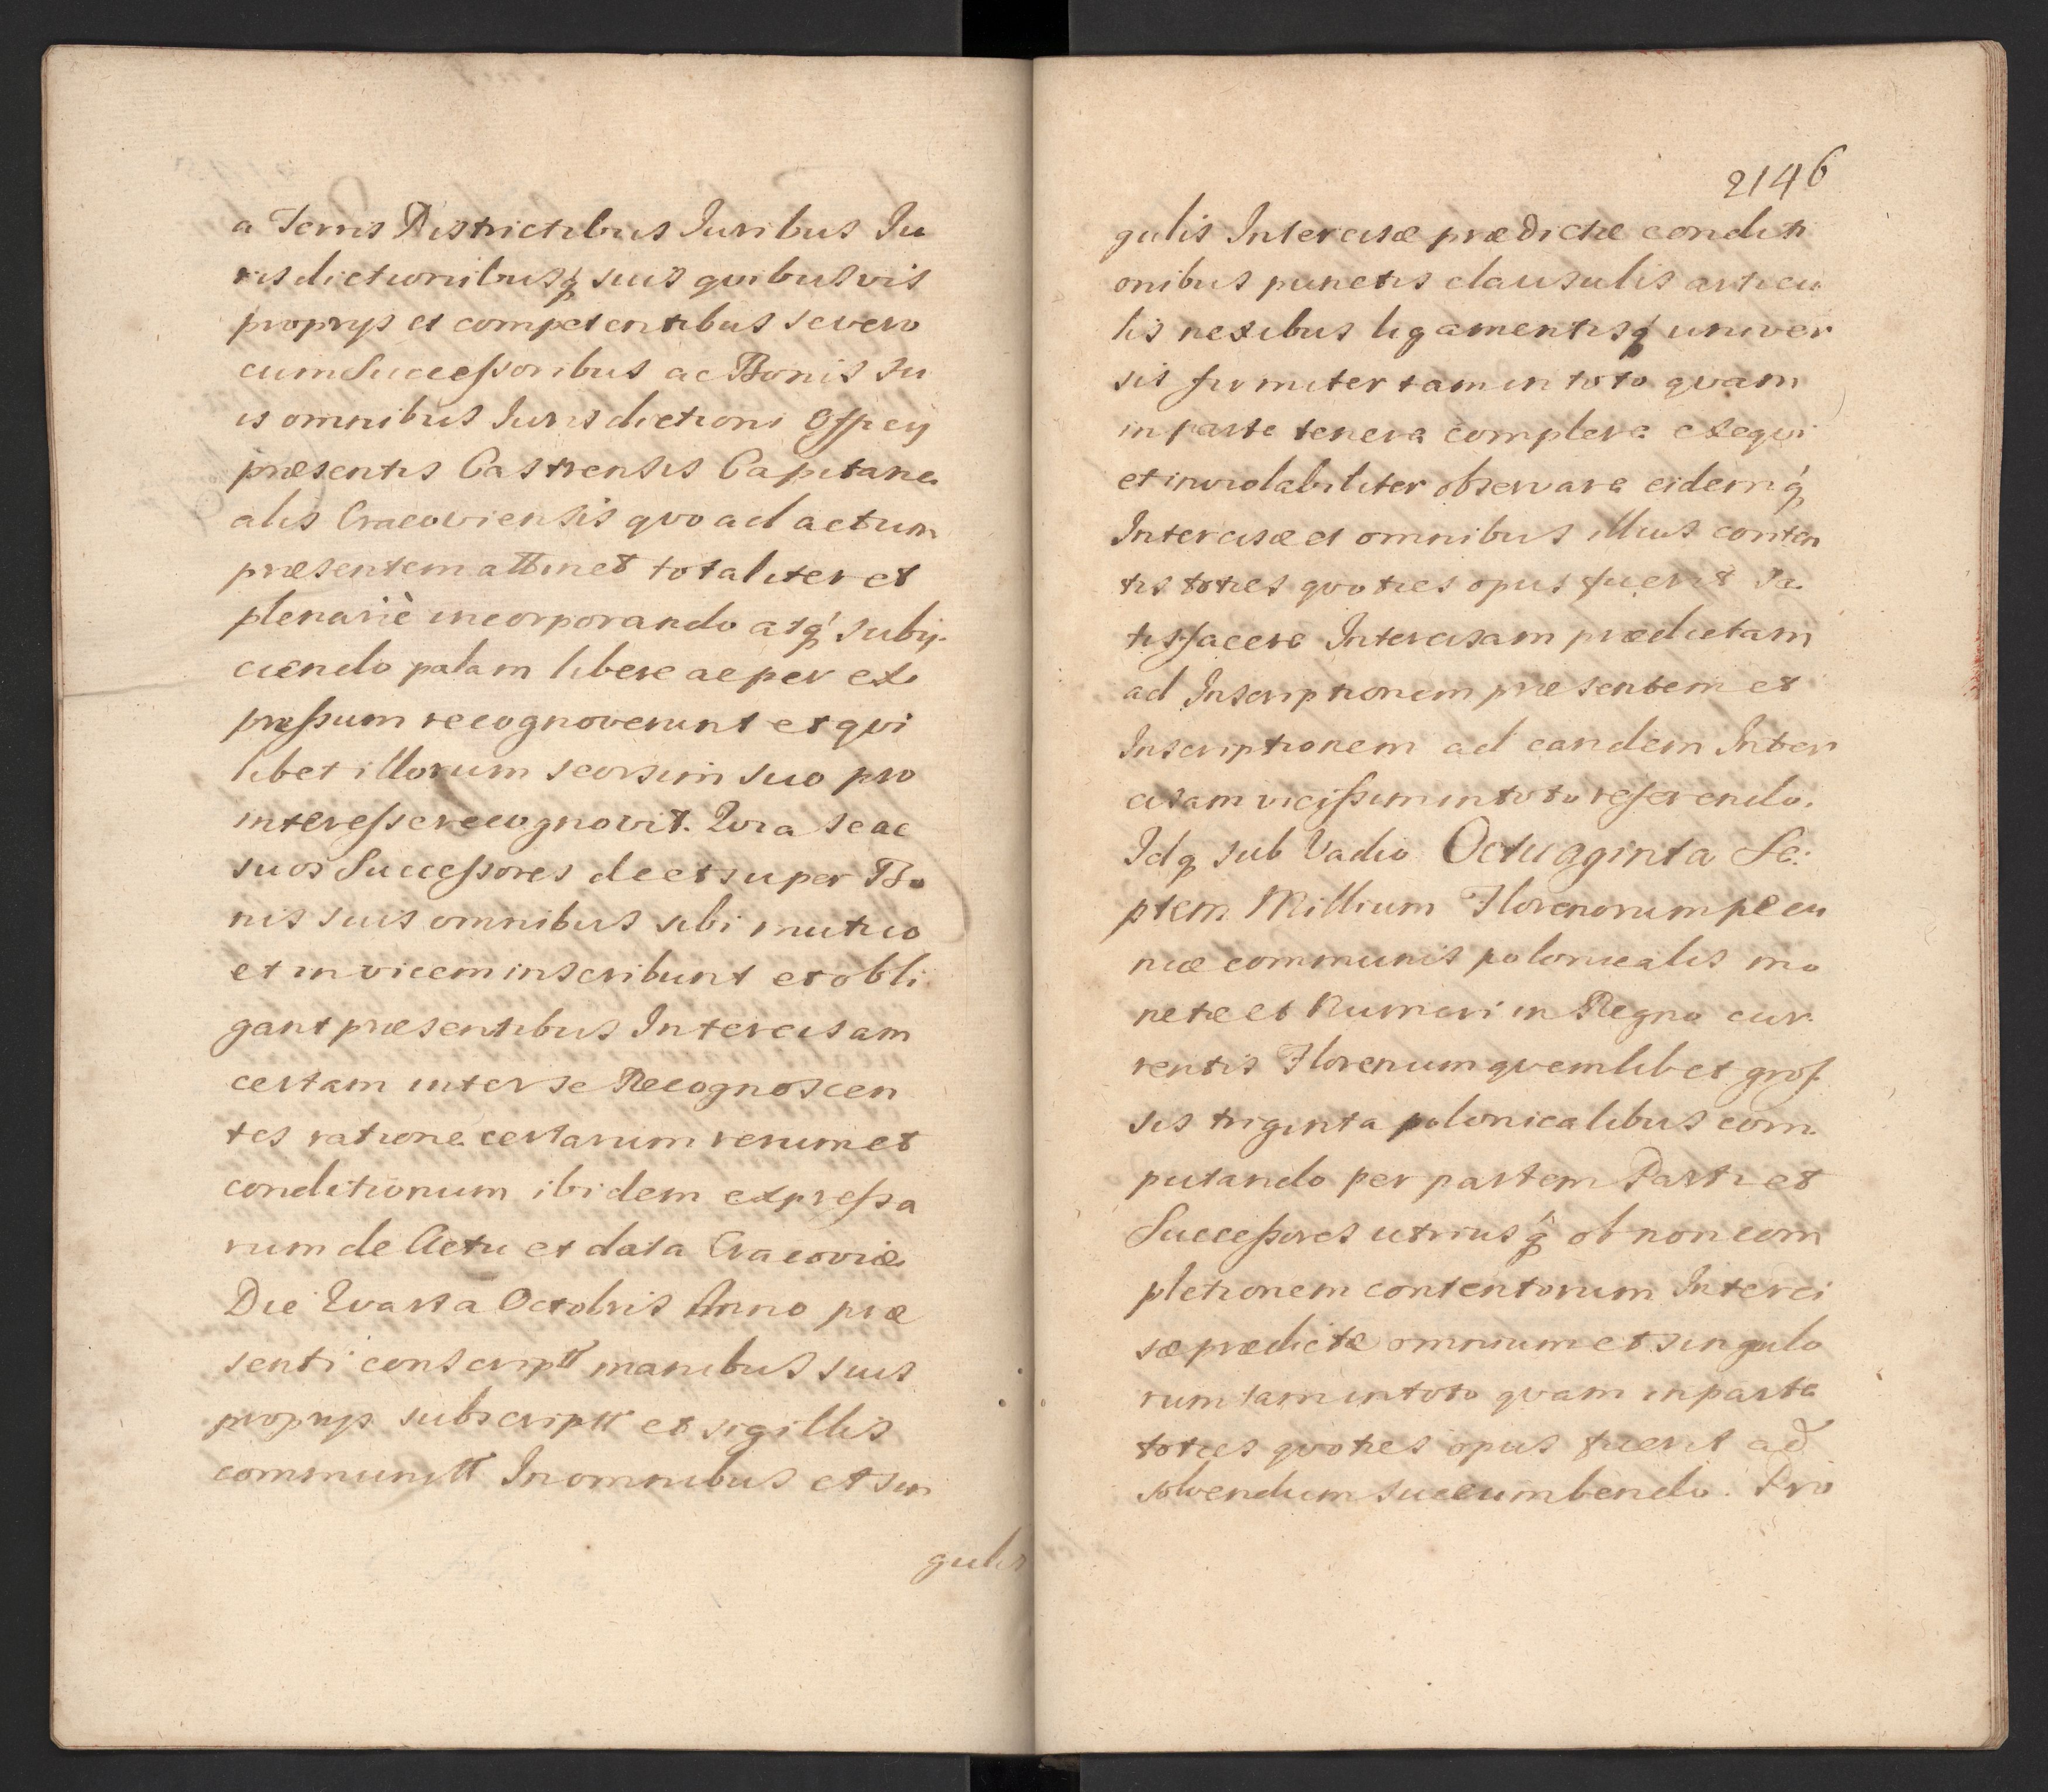 a Terris Districtibus Iuribus Iu
risdictionibusq suis quibusvis
proprijs et competentibus se vero
cum Successoribus ac Bonis su
is omnibus Iurisdictioni Officij
præsentis Castrensis Capitane
alis Cracoviensis quo ad actum
præsentem attinet totaliter et
plenariè incorporando atq subij
ciendo palam libere ac per ex
pressum recognoverunt et qui
libet illorum seorsim suo pro
interesse recognovit. Quia se ac
suos Successores de et super Bo
nis suis omnibus sibi mutuo
et in vicem inscribunt et obli
gant præsentibus Intercisam
certam inter se Recognoscen
tes ratione certarum rerum et
conditionum ibidem expressa
rum de Actu et data Cracoviæ
Die Quarta Octobris Anno præ
senti conscriptt manibus suis
proprijs subscriptt et sigillis
communitt In omnibus et sin
gulis
2146
gulis Intercisæ prædictæ conditi
onibus punctis clausulis articu
lis nexibus ligamentisq univer
sis firmiter tam in toto quam
in parte tenere complere exequi
et inviolabiliter observare eidemq
Intercisæ et omnibus illius conten
tis toties quoties opus fuerit sa
tisfacere Intercisam prædictam
ad Inscriptionem præsentem et
Inscriptionem ad eandem Inter
cisam vicissim in toto referendo.
Idq sub Vadio Octuaginta Se:
ptem Millium Florenorum pecu
niæ communis polonicalis mo
netæ et Numeri in Regno cur
rentis Florenum quemlibet gros
sis triginta polonicalibus com
putando per partem Parti et
Successores utriusq ob non com
pletionem contentorum Interci
sæ prædictæ omnium et singulo
rum tam in toto quam in parte
toties quoties opus fuerit ad
solvendum succumbendo. Pro